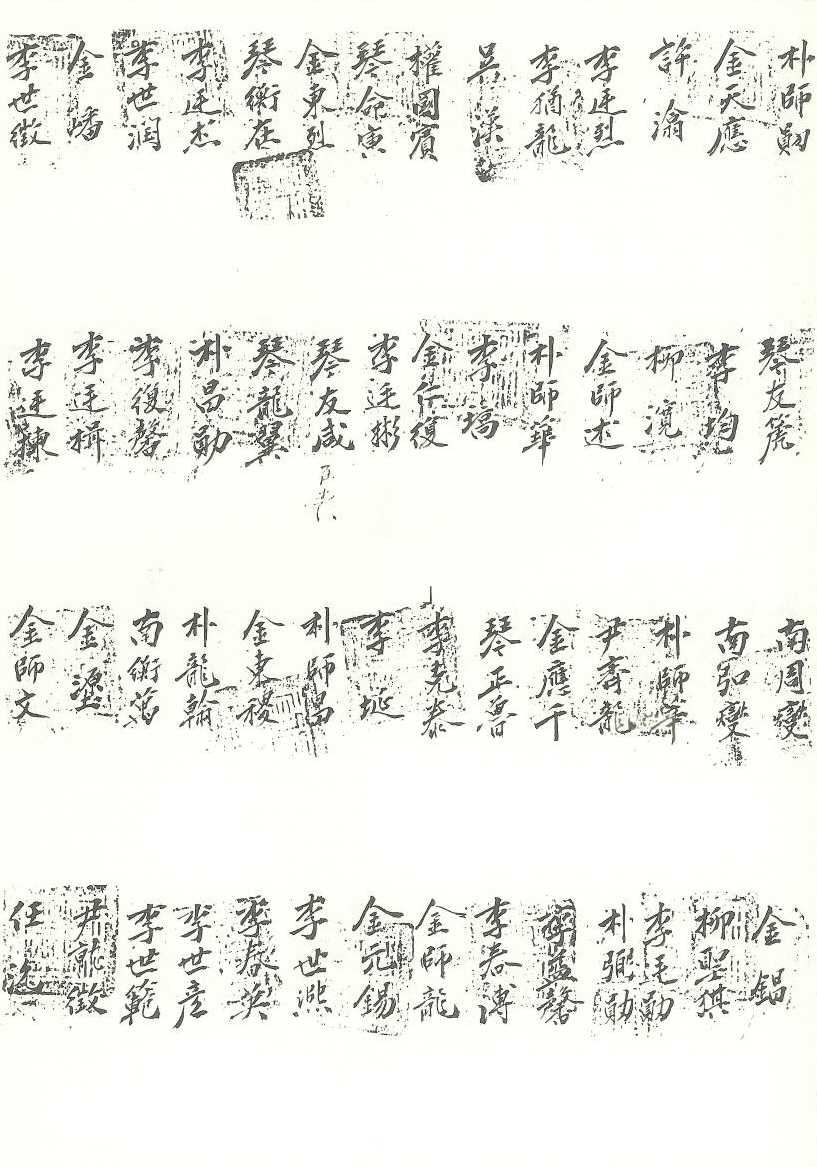 朴師勛
金天應
許滃
李廷烈
李猶龍
吳漢
權國賓
琴命寅
金東烈
琴衡在
李廷杰
李世潤
金嶓
李世徵
琴友箎
李均
柳
金師述
朴師華
李塙
金仁復
李廷彬
琴友咸
琴龍翼
朴昌勛
李復馨
李廷楫
李廷棟
南周燮
南弘燮
朴師
尹齊龍
金應千
琴正魯
李克泰
李埏
朴師昌
金東稷
朴龍翰
南衡萬
金
金師文
金鍻
柳聖祺
李廷勛
朴弼勛
李春溥
金師龍
金元錫
李世熙
李春英
李世彦
李世範
尹就徵
任